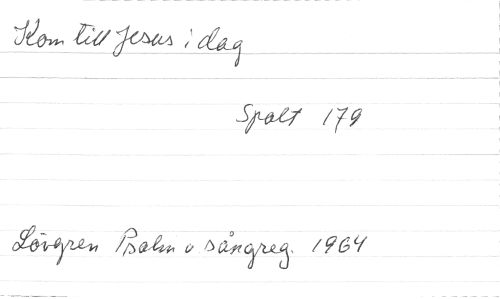 Kom till Jesus i dag
Spalt 179
Lövgren Psalm o sångreg. 1964